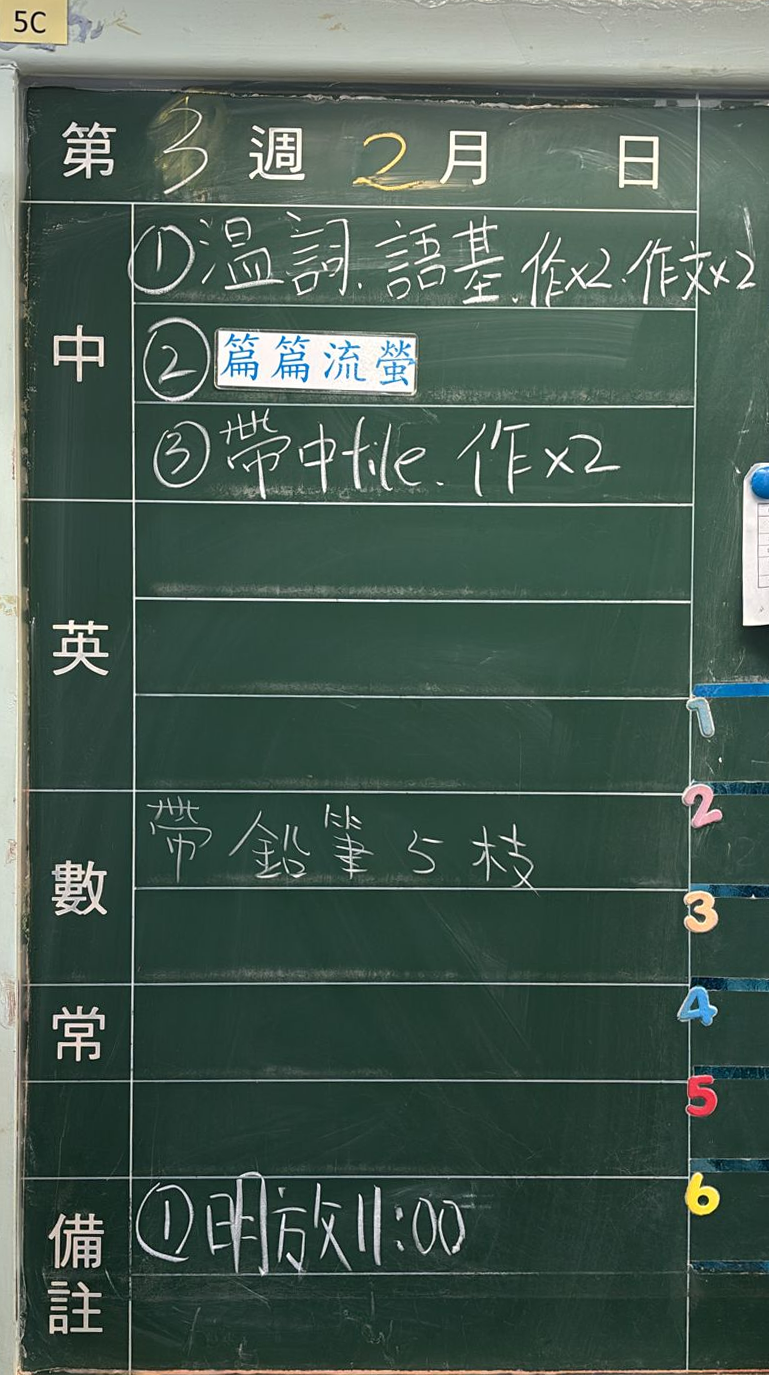 5C
第3週2月 日
中
①温詞.語基.作x2.作文x2
②篇篇流螢
③帶中file.作x2
英
數
帶鉛筆5枝
常
備註
①明放11:00
1
2
3
4
5
6